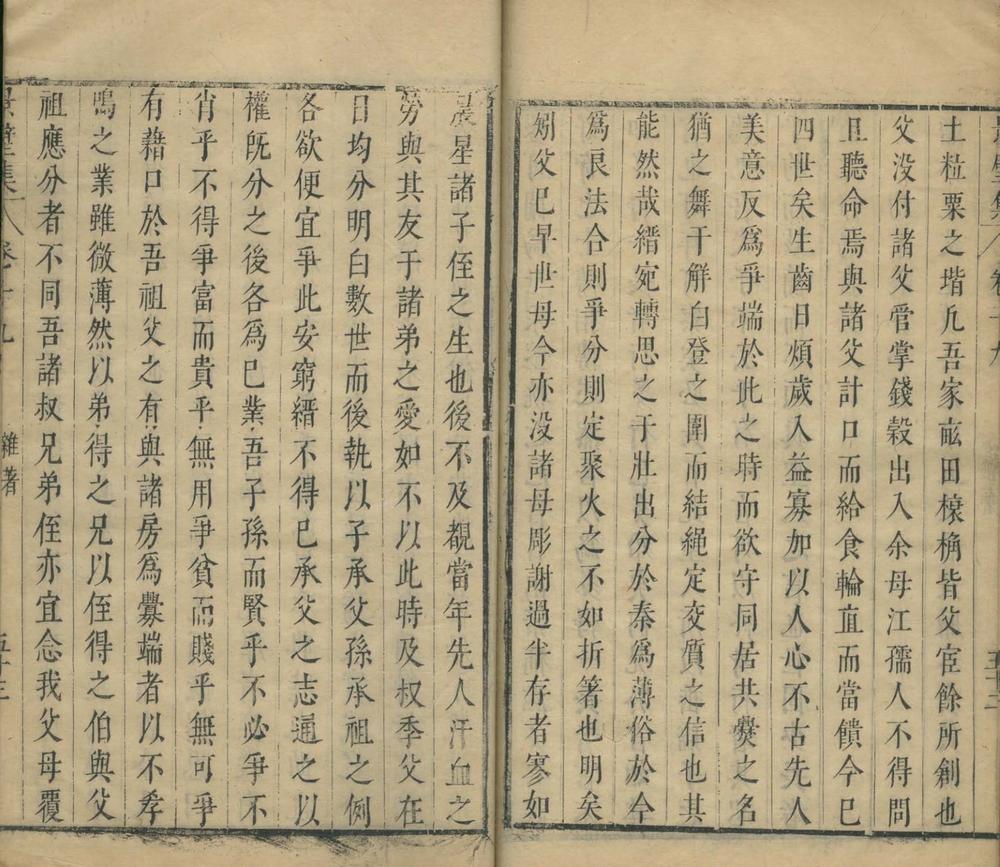 土粒粟之堦凡吾家畝田榱桷皆父宦餘所創也
父没付諸父管掌錢穀出入余母江孺人不得問
且聽命焉與諸父計口而給食輪直而當饋今已
四世矣生齒日煩歲入益寡加以人心不古先人
美意反為爭端於此之時而欲守同居共爨之名
猶之舞干解白登之圍而結繩定交質之信也其
能然哉縉宛轉思之子壯出分於秦為薄俗於今
為良法合則爭分則定聚火之不如折箸也明矣
矧父巳早世母今亦没諸母彫謝過半存者寥如
晨星諸子侄之生也後不及覩當年先人汗血之
勞與其友于諸弟之愛如不以此時及叔季父在
日均分明白數世而後執以子承父孫承祖之例
各欲便宜爭此安窮縉不得巳承父之志通之以
權既分之後各為巳業吾子孫而賢乎不必爭不
肖乎不得爭富而貴乎無用爭貧而賤乎無可爭
有藉口於吾祖父之有與諸房為釁端者以不孝
鳴之業雖微薄然以弟得之兄以侄得之伯與父
祖應分者不同吾諸叔兄弟侄亦宜念我父母覆
集 卷十九 雜著 五十三